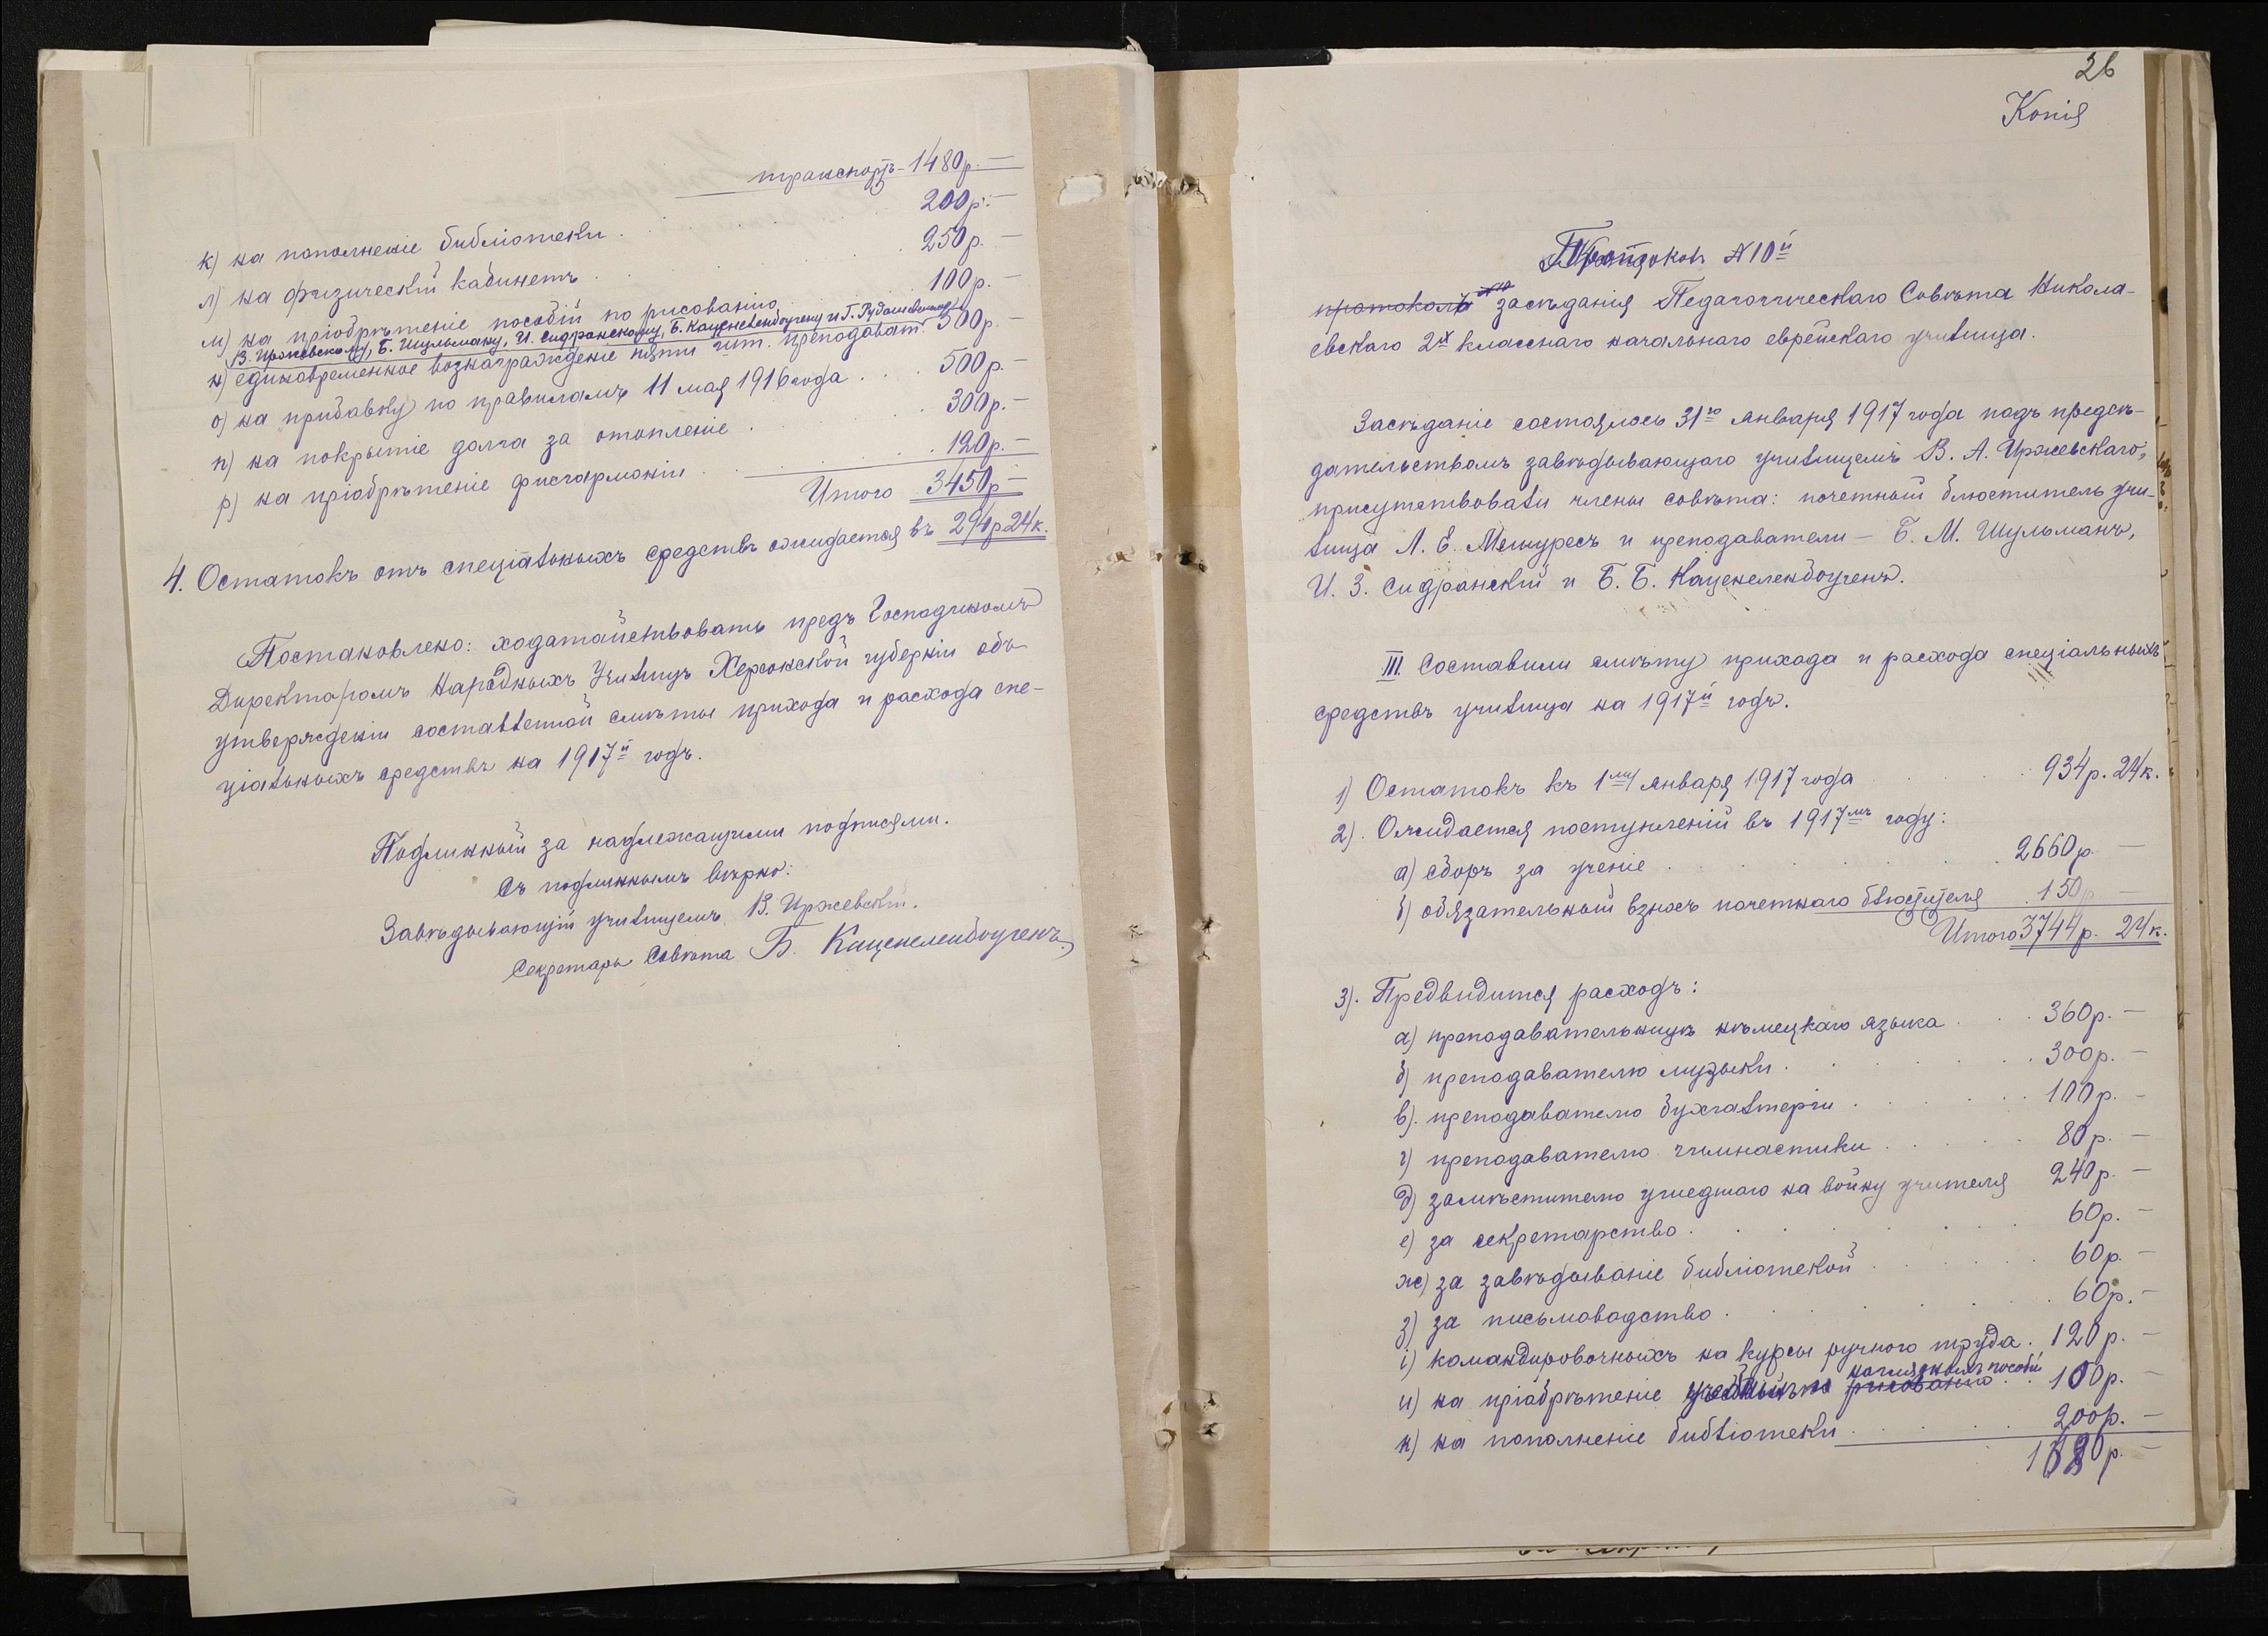 транспортъ - 1480р. —
к) на пополненіе библіотеки . . . 200р. —
л) на физическій кабинетъ . . . 250р. —
м) на пріобрѣтеніе пособій по рисованію 100р. —
В. Иржевскому, Б. Шульману, И. Сидранскому, Б. Каценеленбоугену и Г.
н) единовременное вознагражденіе пяти шт. преподават. 500р. —
о) на прибавку по правиламъ 11 мая 1916 года . . . 500р. —
п) на покрытіе долга за отопленіе . . . 300р. —
р) на пріобрѣтеніе фисгармоніи . . . 120р. —
Итого 3450р —
4. Остатокъ отъ спеціальныхъ средствъ ожидается въ 294р 24к.
Постановлено: ходатайствовать предъ Господиномъ
Директоромъ Народныхъ Училищъ Херсонской губерніи объ
утвержденіи составленной смѣты прихода и расхода спе-
ціальныхъ средствъ на 1917й годъ.
Подлинный за надлежащими подписями.
Съ подлиннымъ вѣрно:
Завѣдывающій училищемъ В. Иржевскій.
Секретарь Совѣта Б. Каценеленбоугенъ
26
Копія
Протоколъ №10й
протоколъ №10 засѣданія Педагогическаго Совѣта Никола-
евскаго 2х класснаго начальнаго еврейскаго училища.
Засѣданіе состоялось 31го января 1917 года подъ предсѣ-
дательствомъ завѣдывающаго училищемъ В. А. Иржевскаго,
присутствовали члены совѣта: почетный блюститель учи-
лища Л. Е. Мешуресъ и преподаватели — Б. М. Шульманъ,
И. З. Сидранскій и Б. Б. Каценеленбоугенъ.
III. Составили смѣту прихода и расхода спеціальныхъ
средствъ училища на 1917й годъ.
1) Остатокъ къ 1му января 1917 года . . . 934р. 24к.
2). Ожидается поступленій въ 1917мъ году:
а) сборъ за ученіе . . . 2660р. —
б) обязательный взносъ почетнаго блюстителя . 150р —
Итого 3744р. 24к.
3). Предвидится расходъ:
а) преподавательницѣ нѣмецкаго языка . . . 360р. —
б) преподавателю музыки . . . 300р. —
в). преподавателю бухгалтеріи . . . 100р. —
г) преподавателю гимнастики . . . 80р. —
д) замѣстителю ушедшаго на войну учителя 240р. —
е) за секретарство . . . 60р. —
ж) за завѣдываніе библіотекой . . . 60р. —
з) за письмоводство . . . 60р. —
і) командировочныхъ на курсы ручного труда . 120р. —
наглядныхъ пособій
и) на пріобрѣтеніе рисованію . . 100р. —
к) на пополненіе библіотеки . . . 200р. —